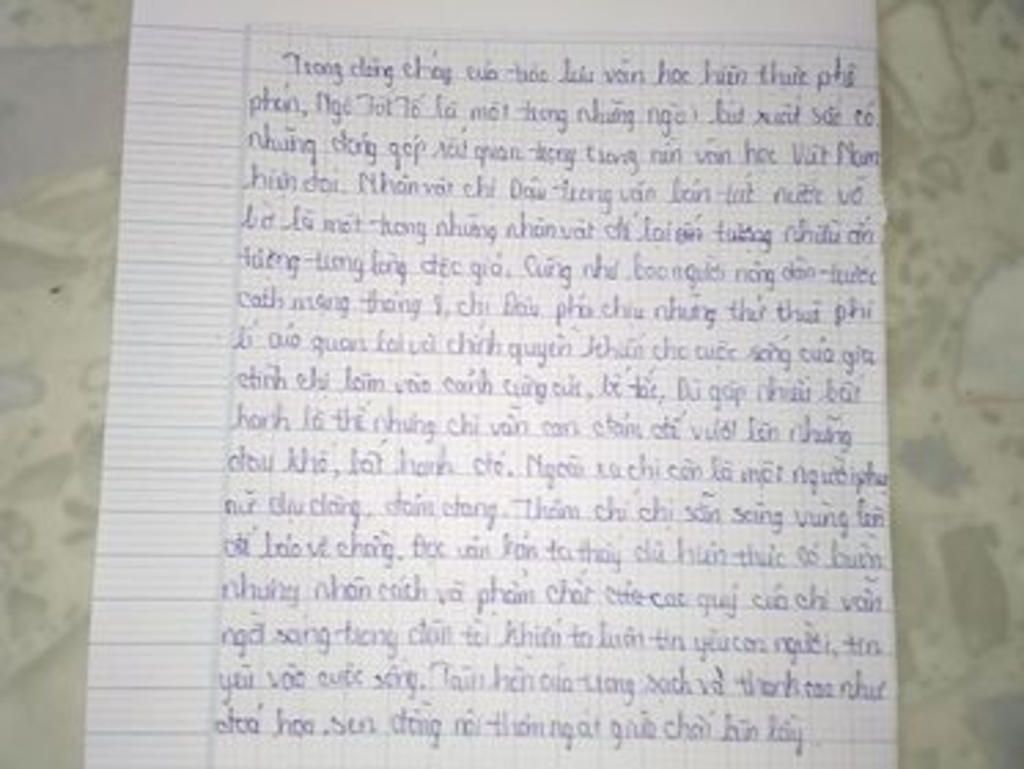 Trong dòng chảy của trào lưu văn học hiện thực phê
phán, Ngô Tất Tố là một trong những ngòi bút xuất sắc có
những đóng góp rất quan trọng trong nền văn học Việt Nam
hiện đại. Nhân vật chị Dậu trong văn bản tức nước vỡ
bờ là một trong những nhân vật để lại ấn tượng nhiều ấn
tượng trong lòng độc giả. Cũng như bao người nông dân trước
cách mạng tháng 8, chị Dậu phải chịu những thứ thuế phi
lí do quan lại và chính quyền khiến cho cuộc sống của gia
đình chị lâm vào cảnh cùng cực, bế tắc. Dù gặp nhiều bất
hạnh là thế nhưng chị vẫn can đảm để vượt lên những
đau khổ, bất hạnh đó. Ngoài ra chị còn là một người phụ
nữ dịu dàng, đảm đang. Thậm chí chị sẵn sàng vùng lên
để bảo vệ chồng. Đọc văn bản ta thấy dù hiện thực có buồn
nhưng nhân cách và phẩm chất cao quý của chị vẫn
ngời sáng trong đêm tối khiến ta luôn tin yêu con người, tin
yêu vào cuộc sống. Tâm hồn của trong sạch và thanh cao như
đoá hoa sen đang nở thơm ngát giữa chốn bùn lầy